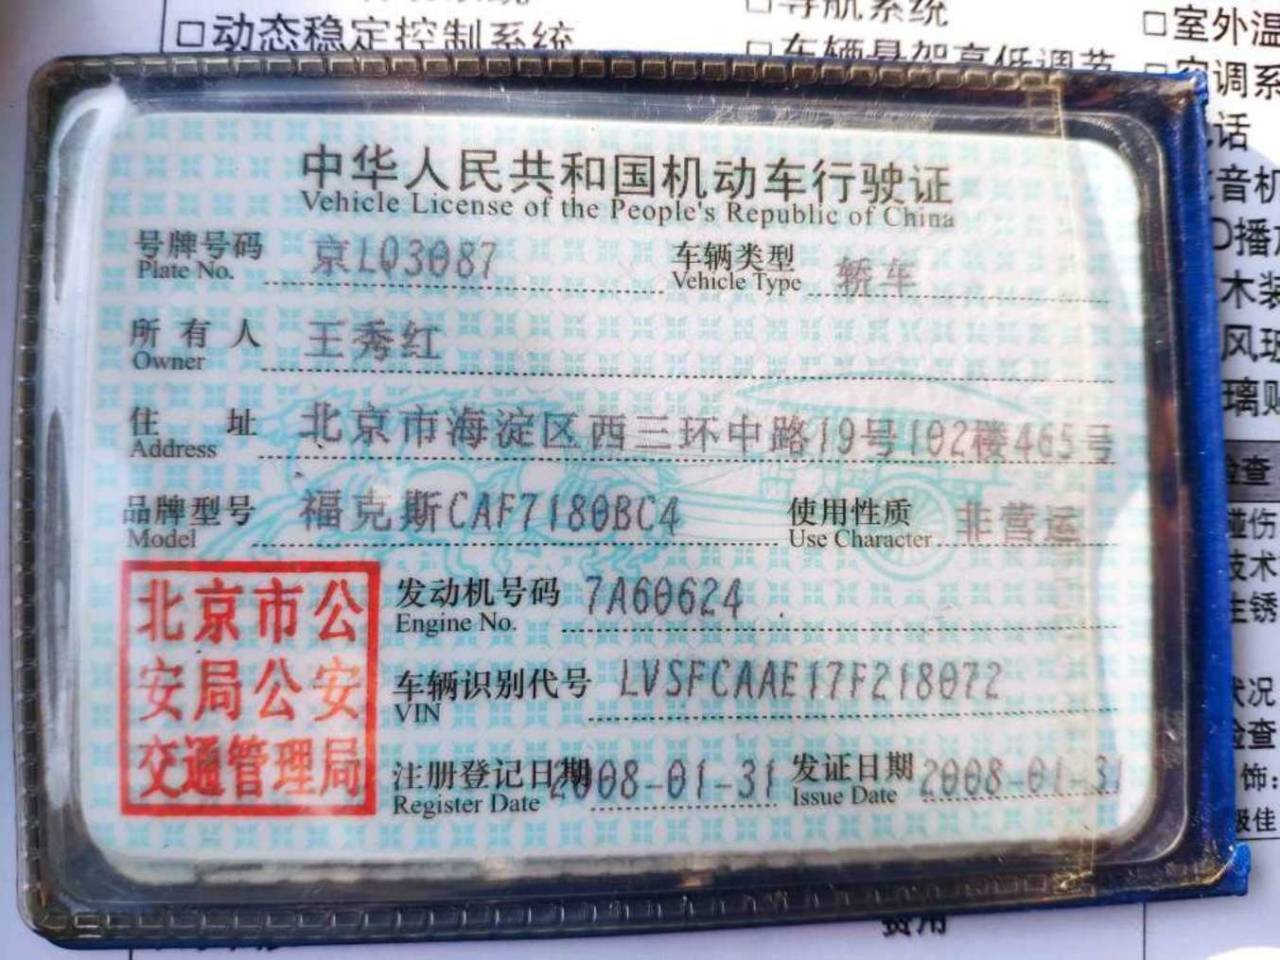 □动态稳定控制系统
□导航系统
□车辆悬架高低调节
□室外温
调系
话
音机
木装
风玻
中华人民共和国机动车行驶证
Vehicle License of the People's Republic of China
号牌号码 京LQ3087 车辆类型 轿车
Plate No. Vehicle Type
所有人 王秀红
Owner
住址 北京市海淀区西三环中路19号102楼465号
Address
品牌型号 福克斯CAF7180BC4 使用性质 非营运
Model Use Character
北京市公
安局公安
交通管理局
发动机号码 7A60624
Engine No.
车辆识别代号 LVSFCAAE17F218072
VIN
注册登记日期 2008-01-31 发证日期 2008-01-31
Register Date Issue Date
检查
碰伤
技术
生锈
状况
检查
饰:
极佳
费用